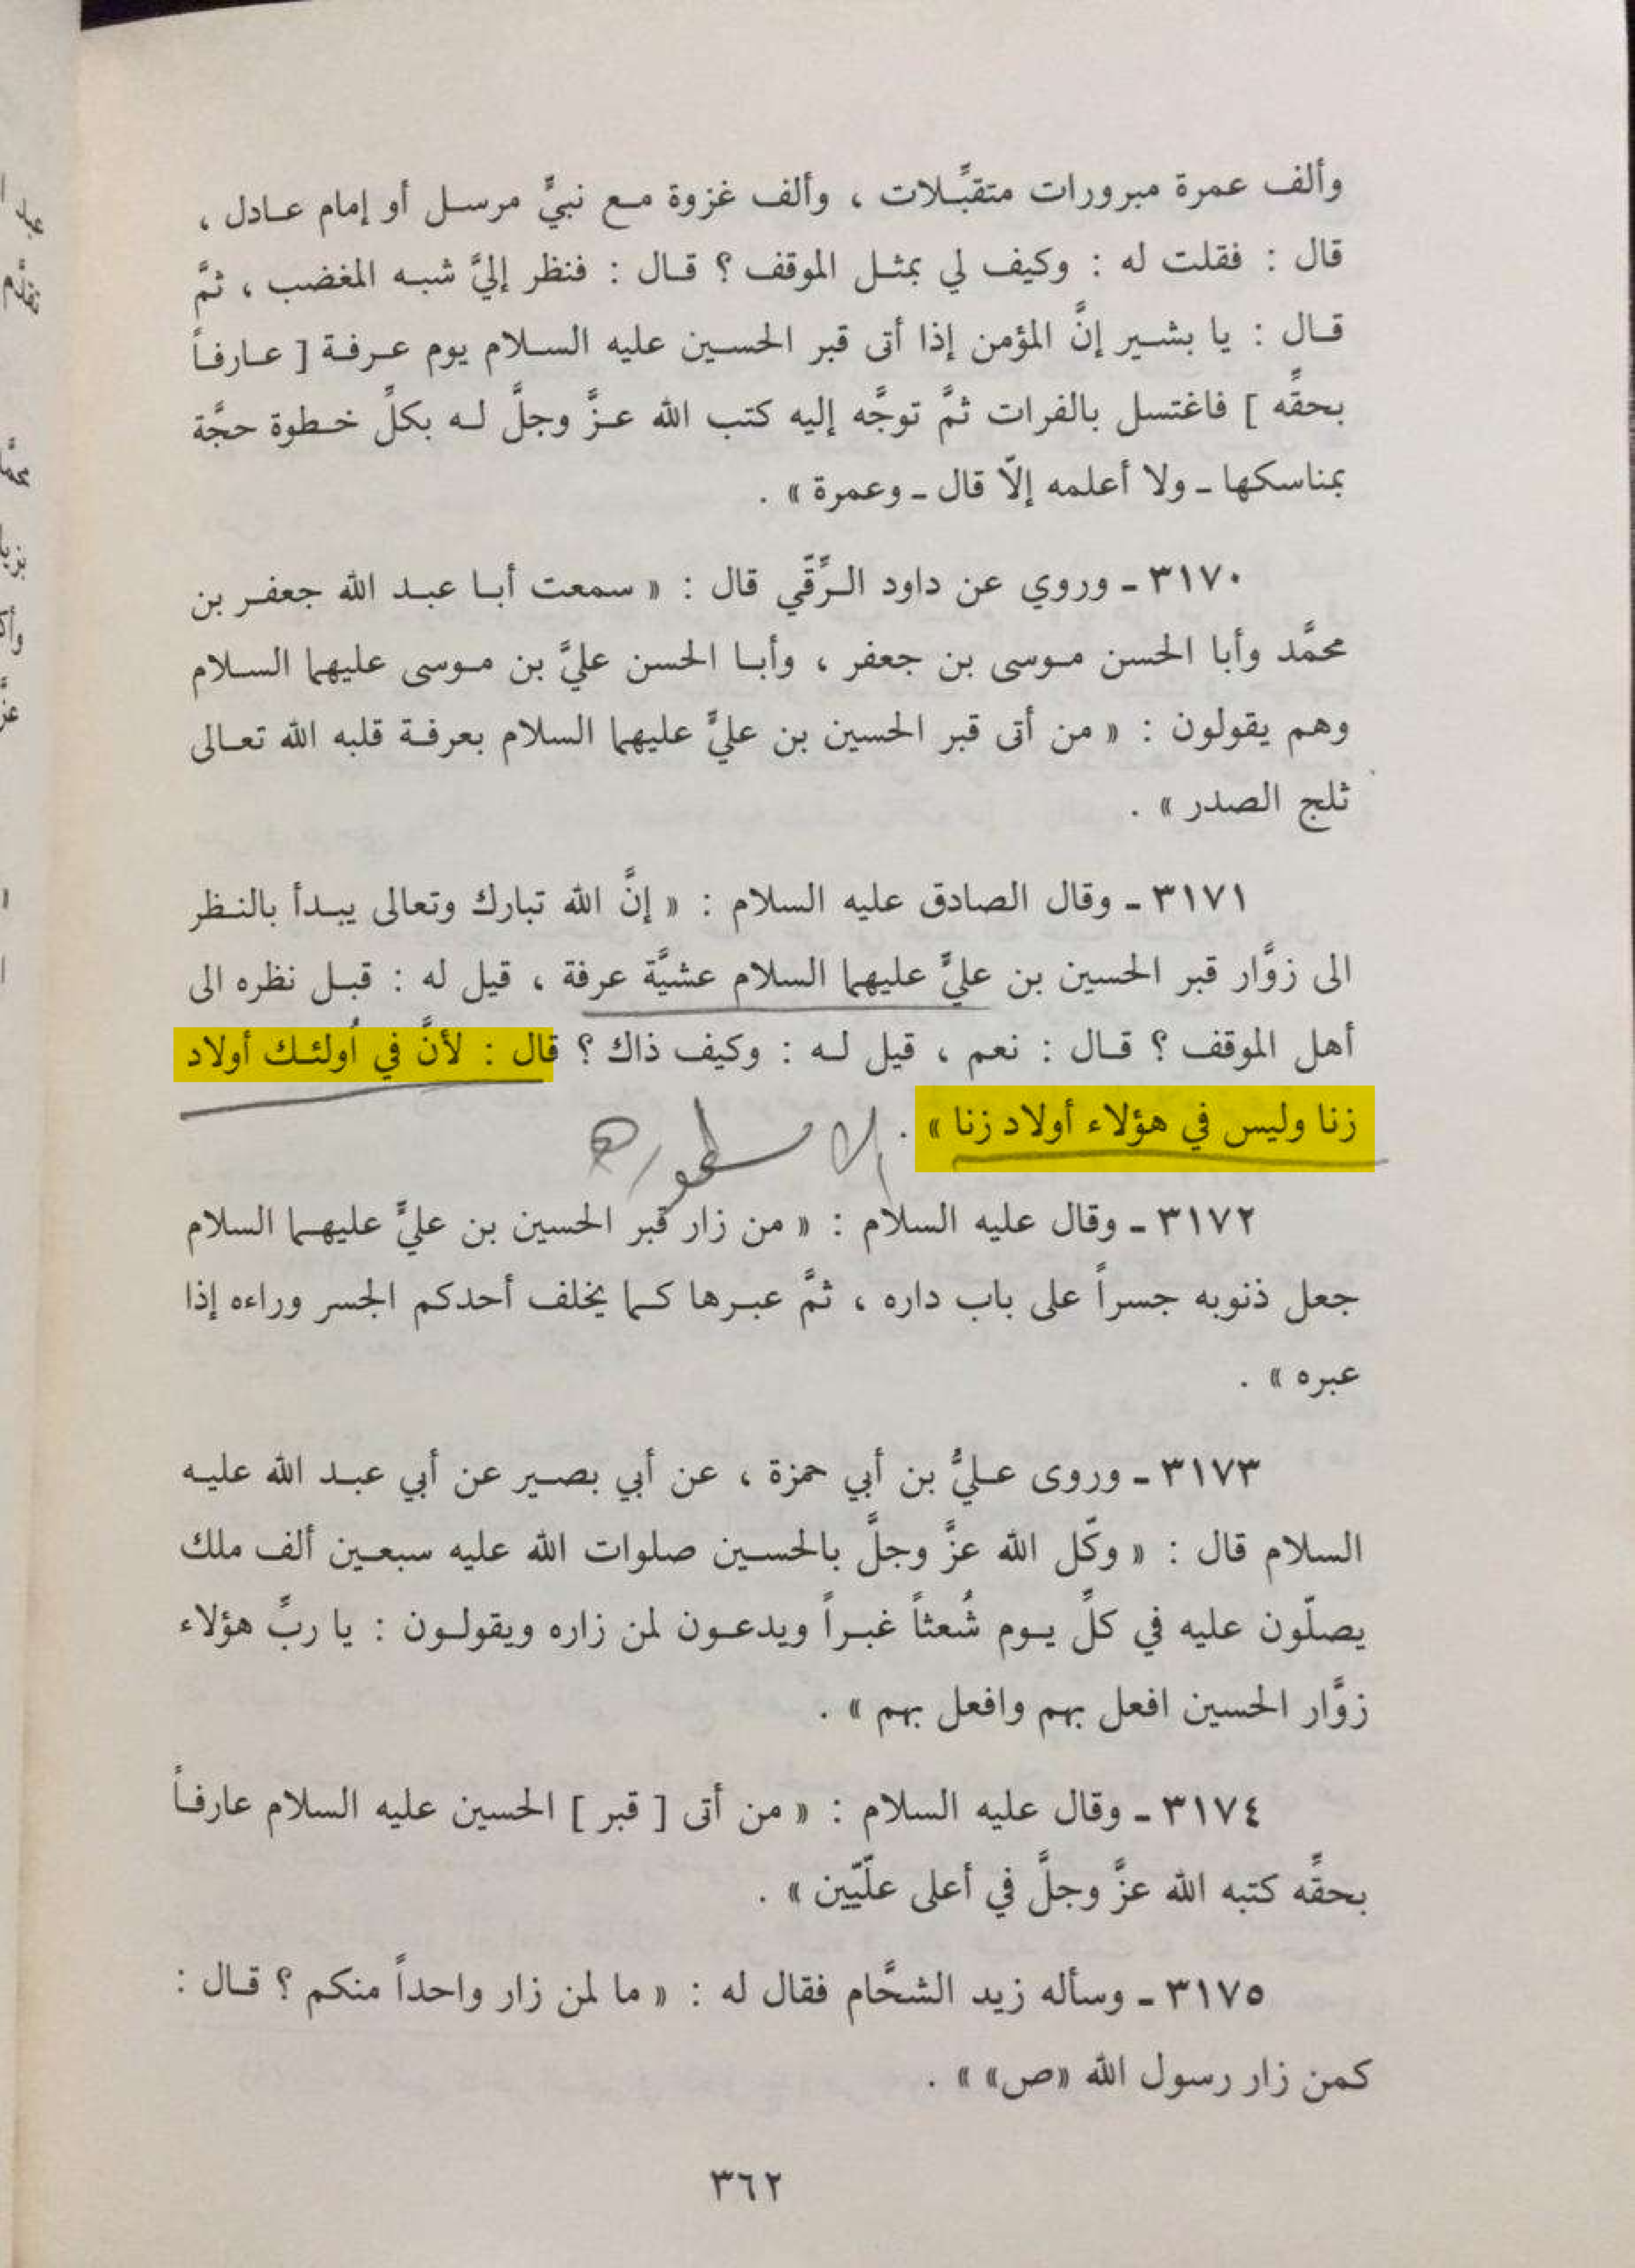 وألف عمرة مبرورات متقبَّلات ، وألف غزوة مع نبيٍّ مرسل أو إمام عادل ،
قال : فقلت له : وكيف لي بمثل الموقف ؟ قال : فنظر إليَّ شبه المغضب ، ثمَّ
قال : يا بشير إنَّ المؤمن إذا أتى قبر الحسين عليه السلام يوم عرفة [ عارفاً
بحقِّه ] فاغتسل بالفرات ثمَّ توجَّه إليه كتب الله عزَّ وجلَّ له بكلِّ خطوة حجَّة
بمناسكها ـ ولا أعلمه إلّا قال ـ وعمرة » .
٣١٧٠ ـ وروي عن داود الرِّقّي قال : « سمعت أبا عبد الله جعفر بن
محمَّد وأبا الحسن موسى بن جعفر ، وأبا الحسن عليَّ بن موسى عليهما السلام
وهم يقولون : « من أتى قبر الحسين بن عليٍّ عليهما السلام بعرفة قلبه الله تعالى
ثلج الصدر » .
٣١٧١ ـ وقال الصادق عليه السلام : « إنَّ الله تبارك وتعالى يبدأ بالنظر
الى زوَّار قبر الحسين بن عليٍّ عليهما السلام عشيَّة عرفة ، قيل له : قبل نظره الى
أهل الموقف ؟ قال : نعم ، قيل له : وكيف ذاك ؟ قال : لأنَّ في أُولئك أولاد
زنا وليس في هؤلاء أولاد زنا » .
٣١٧٢ ـ وقال عليه السلام : « من زار قبر الحسين بن عليٍّ عليهما السلام
جعل ذنوبه جسراً على باب داره ، ثمَّ عبرها كما يخلف أحدكم الجسر وراءه إذا
عبره » .
٣١٧٣ ـ وروى عليُّ بن أبي حمزة ، عن أبي بصير عن أبي عبد الله عليه
السلام قال : « وكّل الله عزَّ وجلَّ بالحسين صلوات الله عليه سبعين ألف ملك
يصلّون عليه في كلِّ يوم شُعثاً غبراً ويدعون لمن زاره ويقولون : يا ربِّ هؤلاء
زوَّار الحسين افعل بهم وافعل بهم » .
٣١٧٤ ـ وقال عليه السلام : « من أتى [ قبر ] الحسين عليه السلام عارفاً
بحقِّه كتبه الله عزَّ وجلَّ في أعلى علّيّين » .
٣١٧٥ ـ وسأله زيد الشحَّام فقال له : « ما لمن زار واحداً منكم ؟ قال :
كمن زار رسول الله «ص» » .
٣٦٢